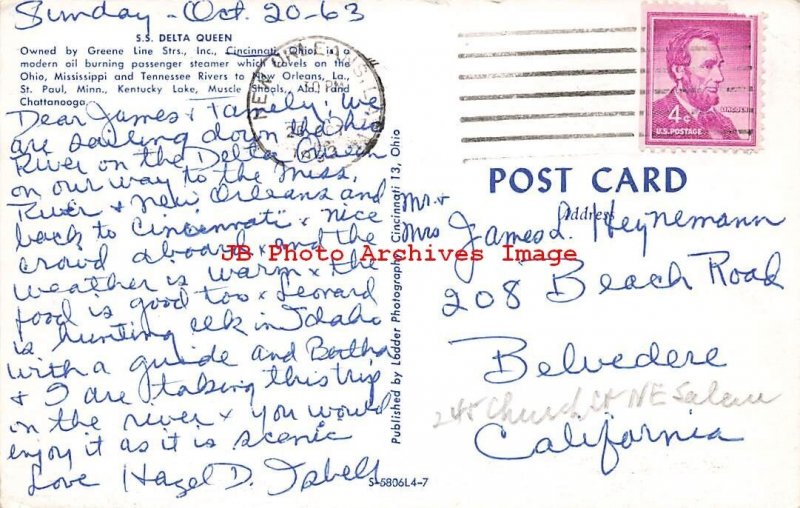 Sunday - Oct. 20-63
S.S. DELTA QUEEN
Owned by Greene Line Strs., Inc., Cincinnati, Ohio, is a
modern oil burning passenger steamer which travels on the
Ohio, Mississippi and Tennessee Rivers to New Orleans, La.,
St. Paul, Minn., Kentucky Lake, Muscle Shoals, Ala. and
Chattanooga.
Dear James & Family; We
are sailing down the Ohio
River on the Delta Queen
on our way to the Miss.
River & New Orleans and
back to Cincinnati & nice
crowd aboard & and the
weather is warm & the
food is good too & Leonard
is hunting elk in Idaho
with a guide and Bertha
& I are taking this trip
on the river & you would
enjoy it as it is scenic
Love Hazel D. Isbell
NEW ORLEANS, LA.
4¢
LINCOLN
U.S. POSTAGE
POST CARD
Address
Mr. &
Mrs James L. Heynemann
208 Beach Road
Belvedere
245 Church St NE Salem
California
Published by Lodder Photography, Cincinnati 13, Ohio
S-5806L4-7
JB Photo Archives Image